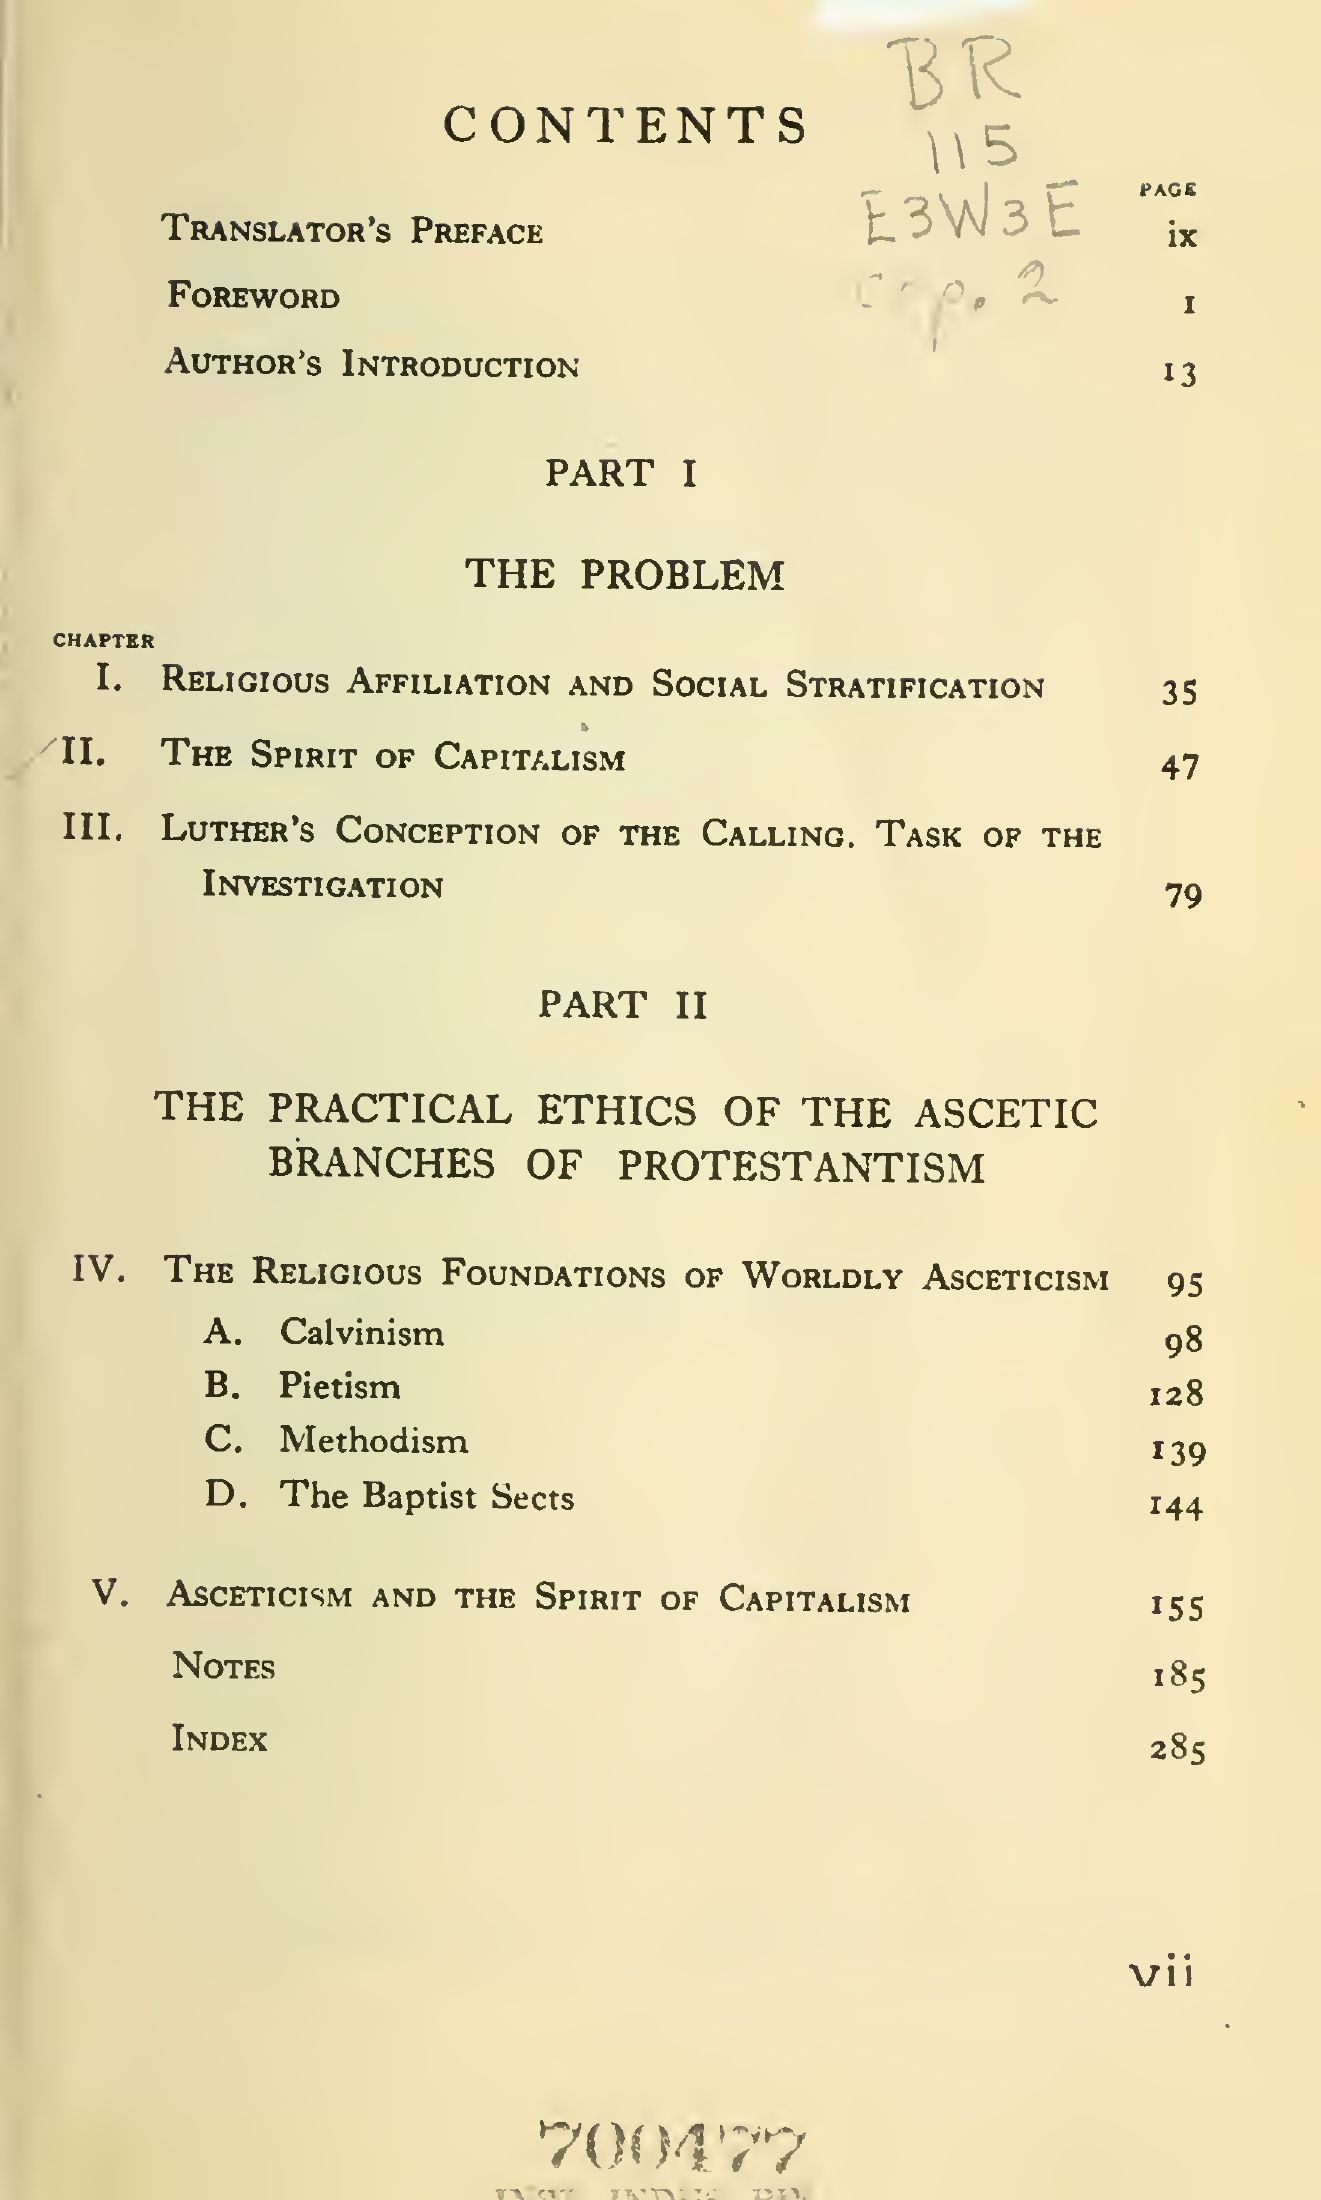 BR
CONTENTS
115
PAGE
E3W3E
TRANSLATOR'S PREFACE ix
cop. 2
FOREWORD 1
AUTHOR'S INTRODUCTION 13
PART I
THE PROBLEM
CHAPTER
I. RELIGIOUS AFFILIATION AND SOCIAL STRATIFICATION 35
II. THE SPIRIT OF CAPITALISM 47
III. LUTHER'S CONCEPTION OF THE CALLING. TASK OF THE
INVESTIGATION 79
PART II
THE PRACTICAL ETHICS OF THE ASCETIC
BRANCHES OF PROTESTANTISM
IV. THE RELIGIOUS FOUNDATIONS OF WORLDLY ASCETICISM 95
A. Calvinism 98
B. Pietism 128
C. Methodism 139
D. The Baptist Sects 144
V. ASCETICISM AND THE SPIRIT OF CAPITALISM 155
NOTES 185
INDEX 285
vii
700477